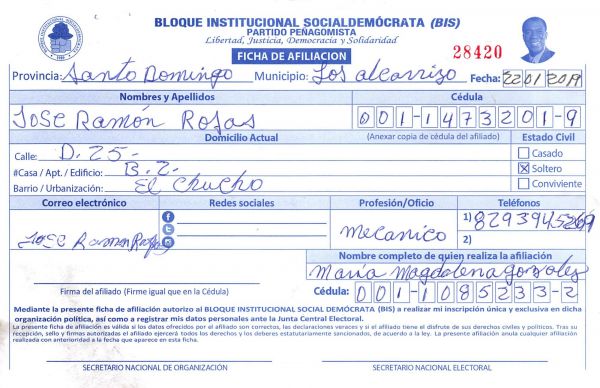 BLOQUE INSTITUCIONAL SOCIALDEMÓCRATA (BIS)
PARTIDO PEÑAGOMISTA
Libertad, Justicia, Democracia y Solidaridad
FICHA DE AFILIACION
28420
Provincia: Santo Domingo Municipio: Los alcarrizo Fecha: 22 01 2019
Nombres y Apellidos Cédula
JOSE Ramón Rojas 001-1473201-9
Domicilio Actual (Anexar copia de cédula del afiliado) Estado Civil
Calle: D. 25- Casado
#Casa / Apt. / Edificio: B. 2. X Soltero
Barrio / Urbanización: El Chucho Conviviente
Correo electrónico Redes sociales Profesión/Oficio Teléfonos
Jose Ramon Rojas mecanico 1)
2)
Nombre completo de quien realiza la afiliación
María Magdalena Gonzales
Firma del afiliado (Firme igual que en la Cédula) Cédula: 001-1085233-2
Mediante la presente ficha de afiliación autorizo al BLOQUE INSTITUCIONAL SOCIAL DEMÓCRATA (BIS) a realizar mi inscripción única y exclusiva en dicha
organización política, así como a registrar mis datos personales ante la Junta Central Electoral.
La presente ficha de afiliación es válida si los datos ofrecidos por el afiliado son correctos, las declaraciones veraces y si el afiliado tiene el disfrute de sus derechos civiles y políticos. Tras su
recepción, sello y firmas autorizadas el afiliado ejercerá todos los derechos y los deberes estatutariamente sancionados, de acuerdo a la ley. La presente afiliación anula cualquier afiliación
realizada con anterioridad a la fecha que aparece en esta ficha.
SECRETARIO NACIONAL DE ORGANIZACIÓN SECRETARIO NACIONAL ELECTORAL